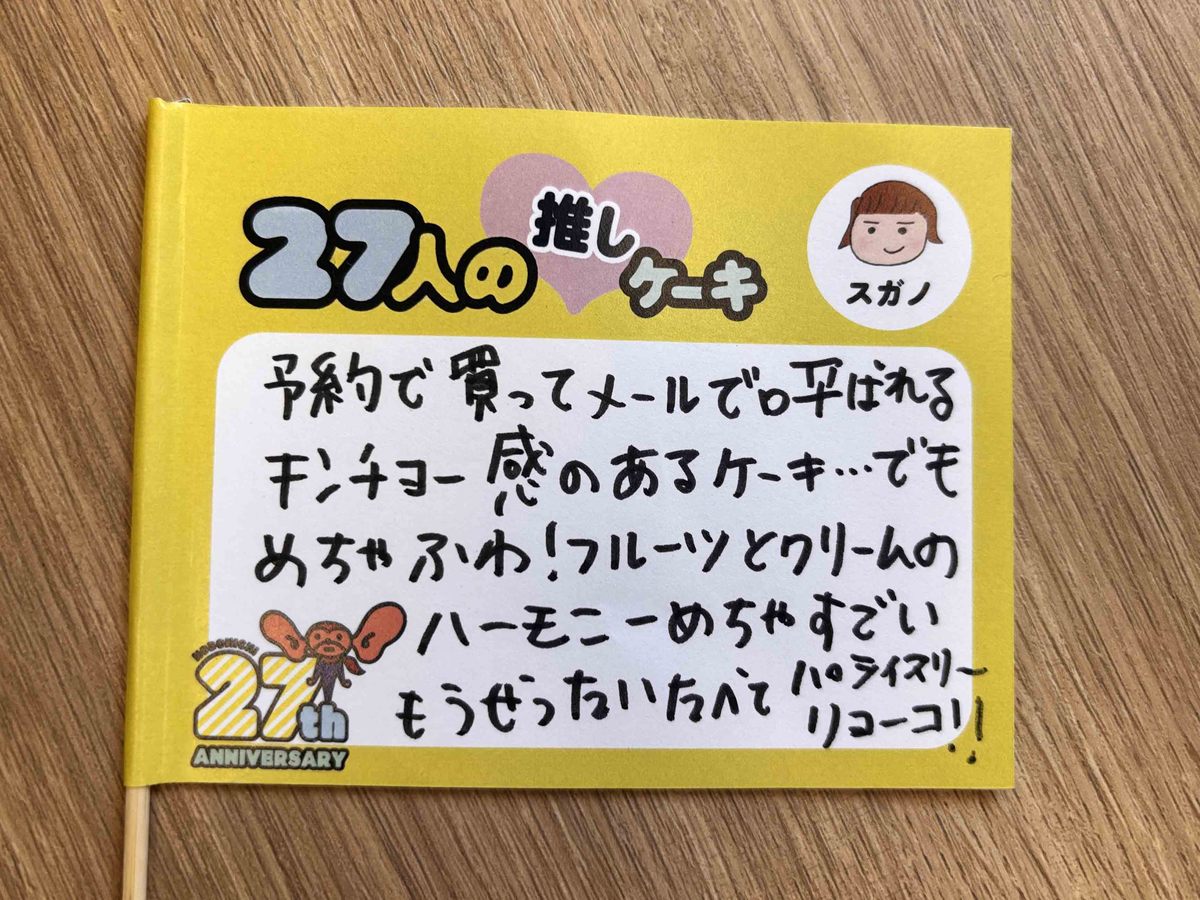 27人の推しケーキ
スガノ
予約で買ってメールで呼ばれる
キンチョー感のあるケーキ…でも
めちゃふわ！フルーツとクリームの
ハーモニーめちゃすごい
もうぜったいたべて パライスリー
リコーコ!!
27th
ANNIVERSARY